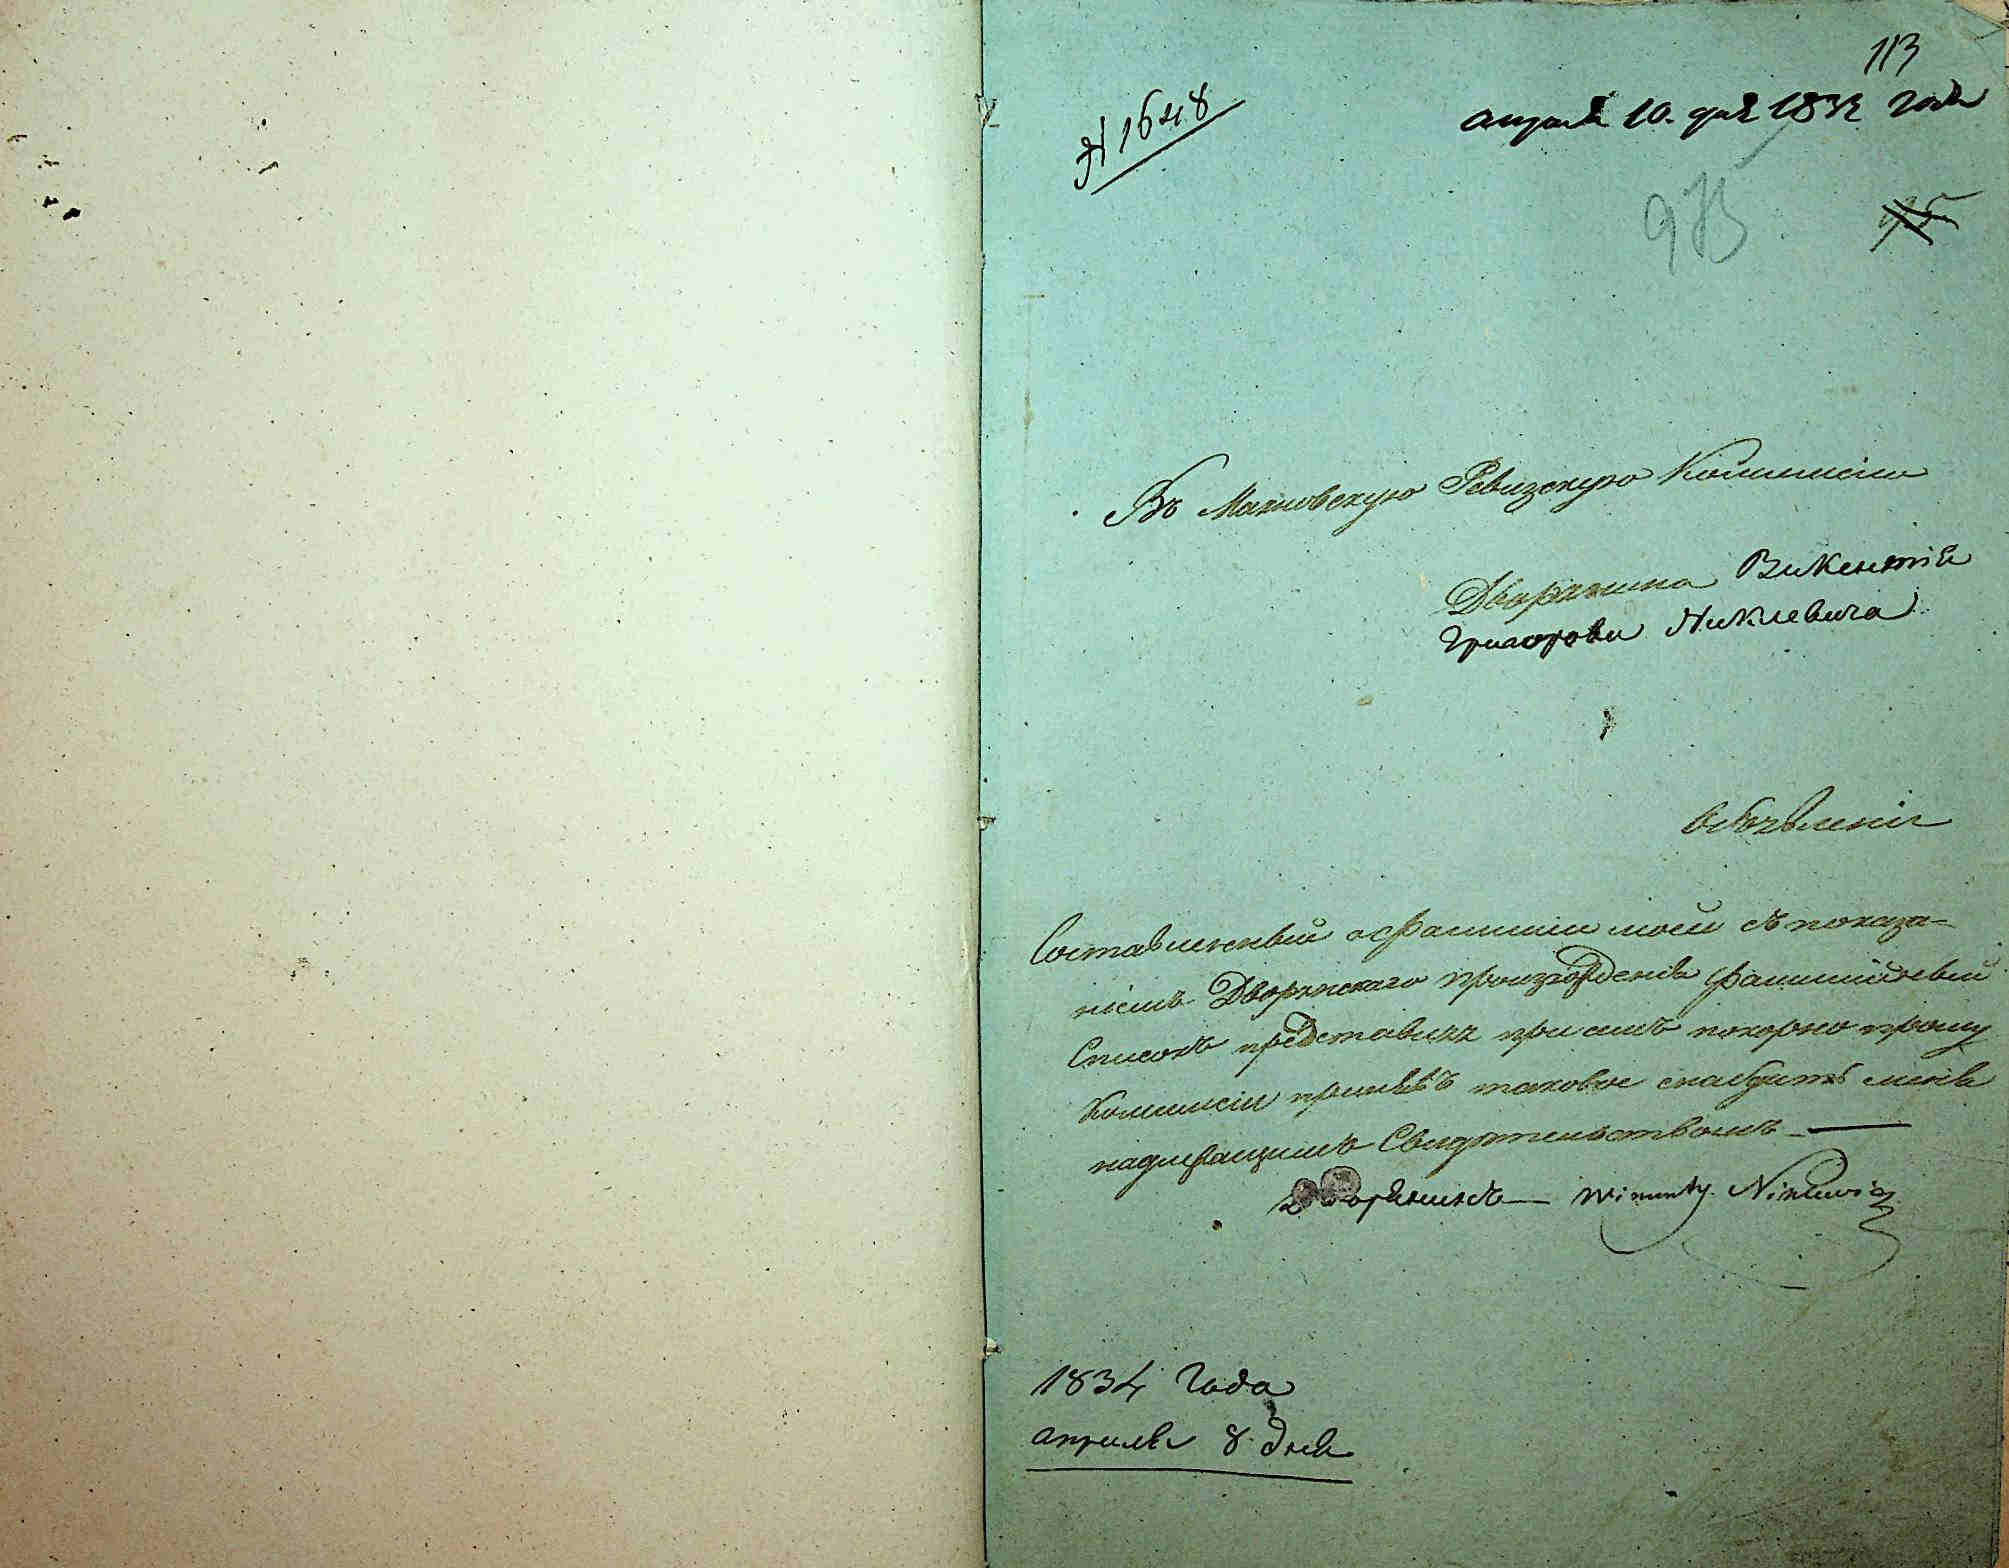 113
№ 1648
апреля 10. дня 1834 года
973
Въ Махновскую Ревизскую Коммисію
Дворянина Викентія
Григорови Никлевича
Объявленіе
Составленный о Фамиліи моей съ показа-
ніемъ Дворянскаго произхожденія фамилійный
Списокъ представляя при семъ покорно прошу
Коммисіи принявъ таковое снабдить меня
надлежащимъ Свидѣтельствомъ
Дворянинъ Wincenty Niklewicz
1834 Года
апрыля 8 дня